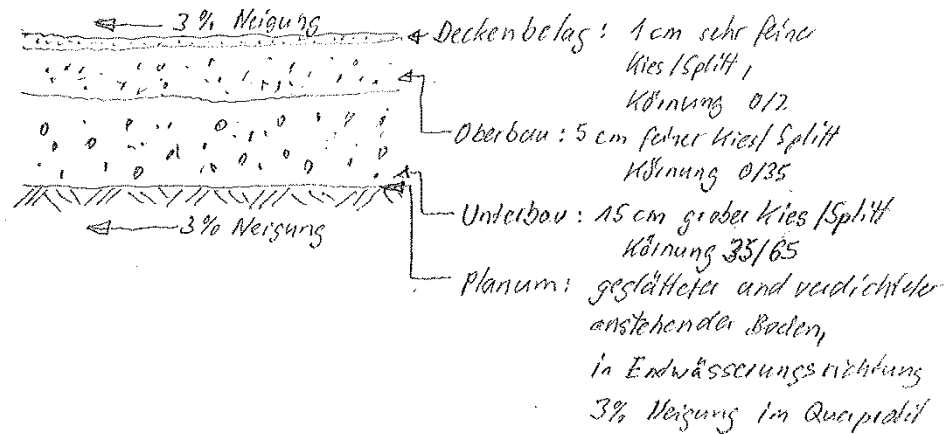 3% Neigung
Deckenbelag: 1 cm sehr feiner
Kies/Splitt,
Körnung 0/2
Oberbau: 5 cm feiner Kies/Splitt
Körnung 0/35
Unterbau: 15 cm grober Kies/Splitt
Körnung 35/65
3% Neigung
Planum: geglätteter und verdichteter
anstehender Boden,
in Entwässerungsrichtung
3% Neigung im Querprofil